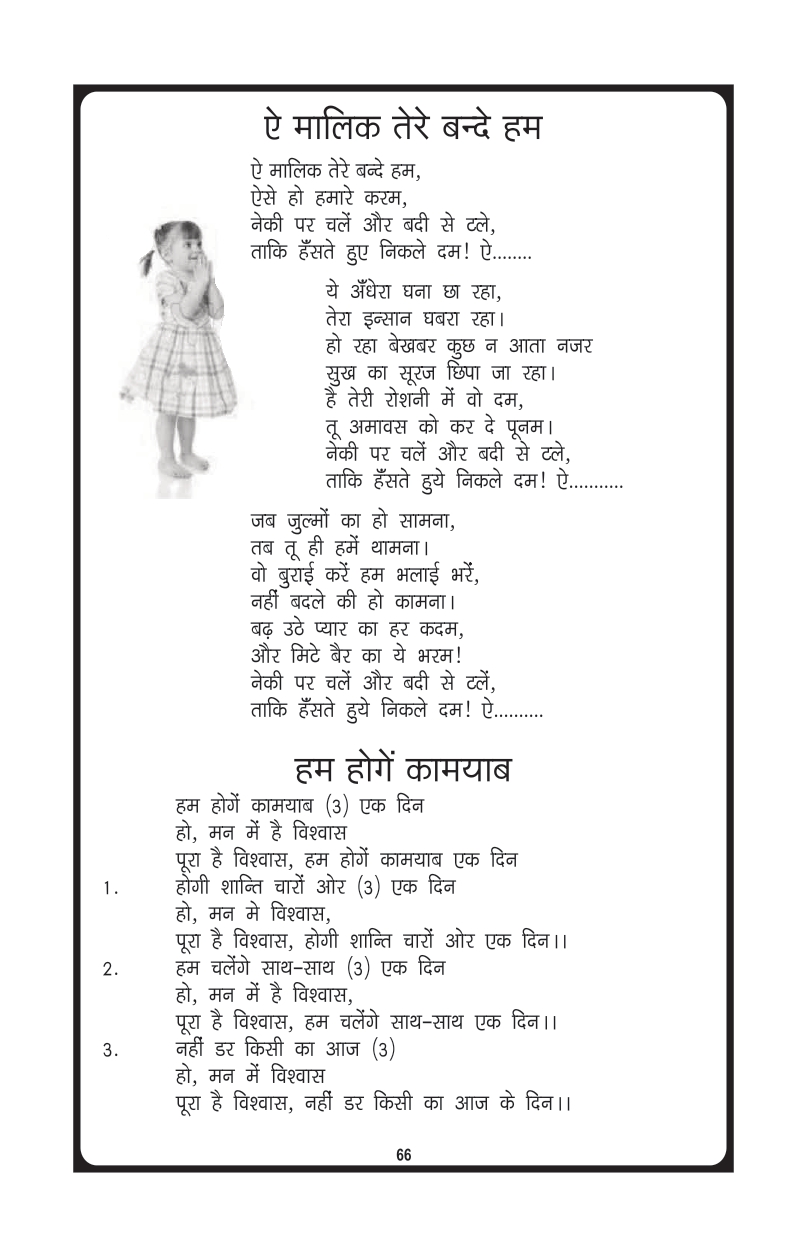 ऐ मालिक तेरे बन्दे हम
ऐ मालिक तेरे बन्दे हम,
ऐसे हो हमारे करम,
नेकी पर चलें और बदी से टले,
ताकि हँसते हुए निकले दम! ऐ........
ये अँधेरा घना छा रहा,
तेरा इन्सान घबरा रहा।
हो रहा बेखबर कुछ न आता नजर
सुख का सूरज छिपा जा रहा।
है तेरी रोशनी में वो दम,
तू अमावस को कर दे पूनम।
नेकी पर चलें और बदी से टले,
ताकि हँसते हुये निकले दम! ऐ...........
जब जुल्मों का हो सामना,
तब तू ही हमें थामना।
वो बुराई करें हम भलाई भरें,
नहीं बदले की हो कामना।
बढ़ उठे प्यार का हर कदम,
और मिटे बैर का ये भरम!
नेकी पर चलें और बदी से टलें,
ताकि हँसते हुये निकले दम! ऐ..........
हम होगें कामयाब
हम होगें कामयाब (3) एक दिन
हो, मन में है विश्वास
पूरा है विश्वास, हम होगें कामयाब एक दिन
1. होगी शान्ति चारों ओर (3) एक दिन
हो, मन मे विश्वास,
पूरा है विश्वास, होगी शान्ति चारों ओर एक दिन।।
2. हम चलेंगे साथ-साथ (3) एक दिन
हो, मन में है विश्वास,
पूरा है विश्वास, हम चलेंगे साथ-साथ एक दिन।।
3. नहीं डर किसी का आज (3)
हो, मन में विश्वास
पूरा है विश्वास, नहीं डर किसी का आज के दिन।।
66